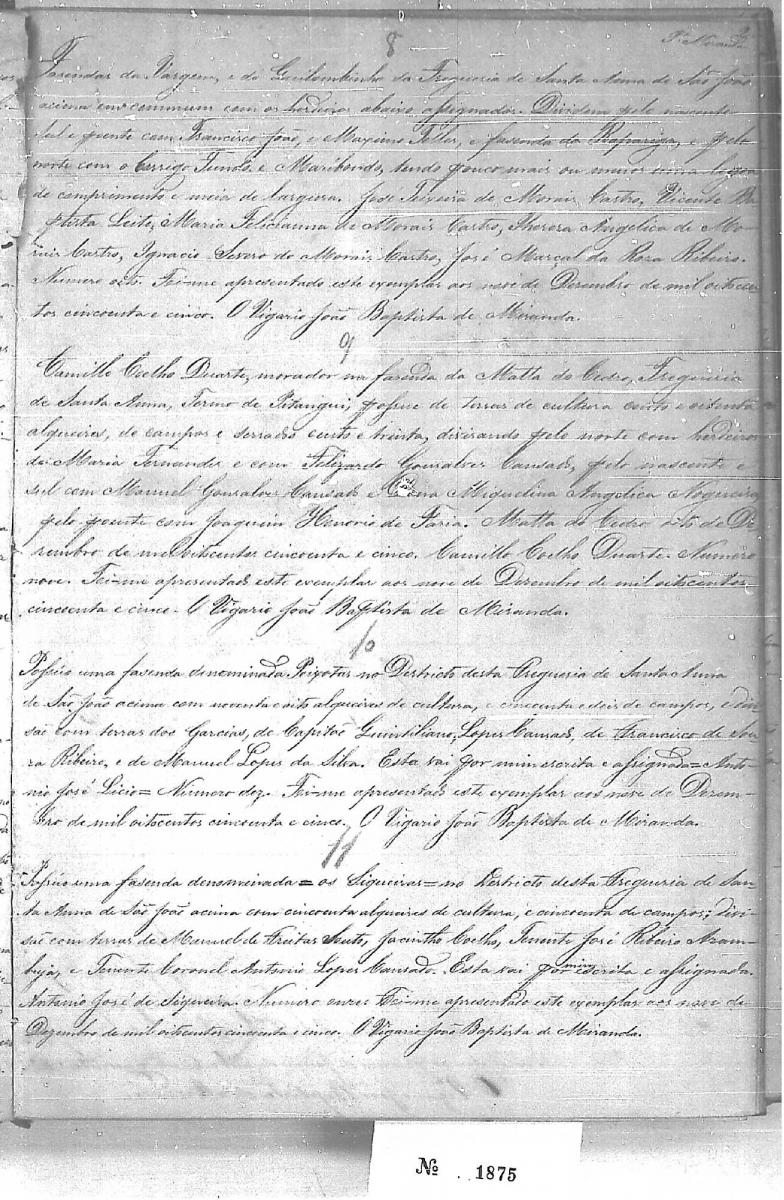 8
Fasendas da Vargem, e do Quilombinho da Freguesia de Santa Anna de São João
acima em commum com os herdeiros abaixo assignados. Dividem pelo nascente
Sul e poente com Francisco João, e Maximo Telles, e fasenda da Rapariga, e pelo
norte com o Corrigo Fundo, e Maribondo, tendo pouco mais ou menos uma legoa
de comprimento e meia de largura. José Teixeira de Morais Castro, Vicente Ba-
ptista Leite, Maria Feliciana de Morais Castro, Thereza Angelica de Mo-
rais Castro, Ignacio Severo de Morais Castro, José Marçal da Roza Ribeiro.
Numero oito. Foi-me apresentado este exemplar aos nove de Dezembro de mil oitocen
tos cincoenta e cinco. O Vigario João Baptista de Miranda.
9
Camillo Coelho Duarte, morador na fasenda da Matta do Cedro, Freguesia
de Santa Anna, Termo de Pitangui, possue de terras de cultura cento e oitenta
alqueires, de campos e serrados cento e trinta, divisando pelo norte com herdeiros
de Maria Fernandes e com Felizardo Gonsalves Cansado, pelo nascente e
sul com Manuel Gonsalves Cansado e Dona Miquelina Angelica Nogueira
pelo poente com Joaquim Honorio de Faria. Matta do Cedro oito de De-
zembro de mil oitocentos cincoenta e cinco. Camillo Coelho Duarte. Numero
nove. Foi-me apresentado este exemplar aos nove de Dezembro de mil oitocentos
cincoenta e cinco. O Vigario João Baptista de Miranda.
10
Possúo uma fasenda denominada Peixotos no Districto desta Freguesia de Santa Anna
de São João acima com noventa e oito alqueires de cultura, e cincoenta e dois de campos, e divi
são com terras dos Garcias, do Capitão Quintiliano Lopes Cansado, de Francisco de Sou
za Ribeiro, e de Manuel Lopes da Silva. Esta vai por mim escrita e assignada = Anto
nio José Licio = Numero dez. Foi-me apresentado este exemplar aos nove de Dezem-
bro de mil oitocentos cincoenta e cinco. O Vigario João Baptista de Miranda.
11
Possúo uma fasenda denomeinada = os Siqueiras = no Districto desta Freguesia de San
ta Anna de São João acima com cincoenta alqueires de cultura, e cincoenta de campos; divi
são com terras de Manuel de Freitas Souto, Jacintho Coelho, Tenente José Ribeiro Azam
buja, e Tenente Coronel Antonio Lopes Cansado. Esta vai por mim escrita e assignada.
Antonio José de Siqueira. Numero onze. Foi-me apresentado este exemplar aos nove de
Dezembro de mil oitocentos cincoenta e cinco. O Vigario João Baptista de Miranda.
Nº 1875